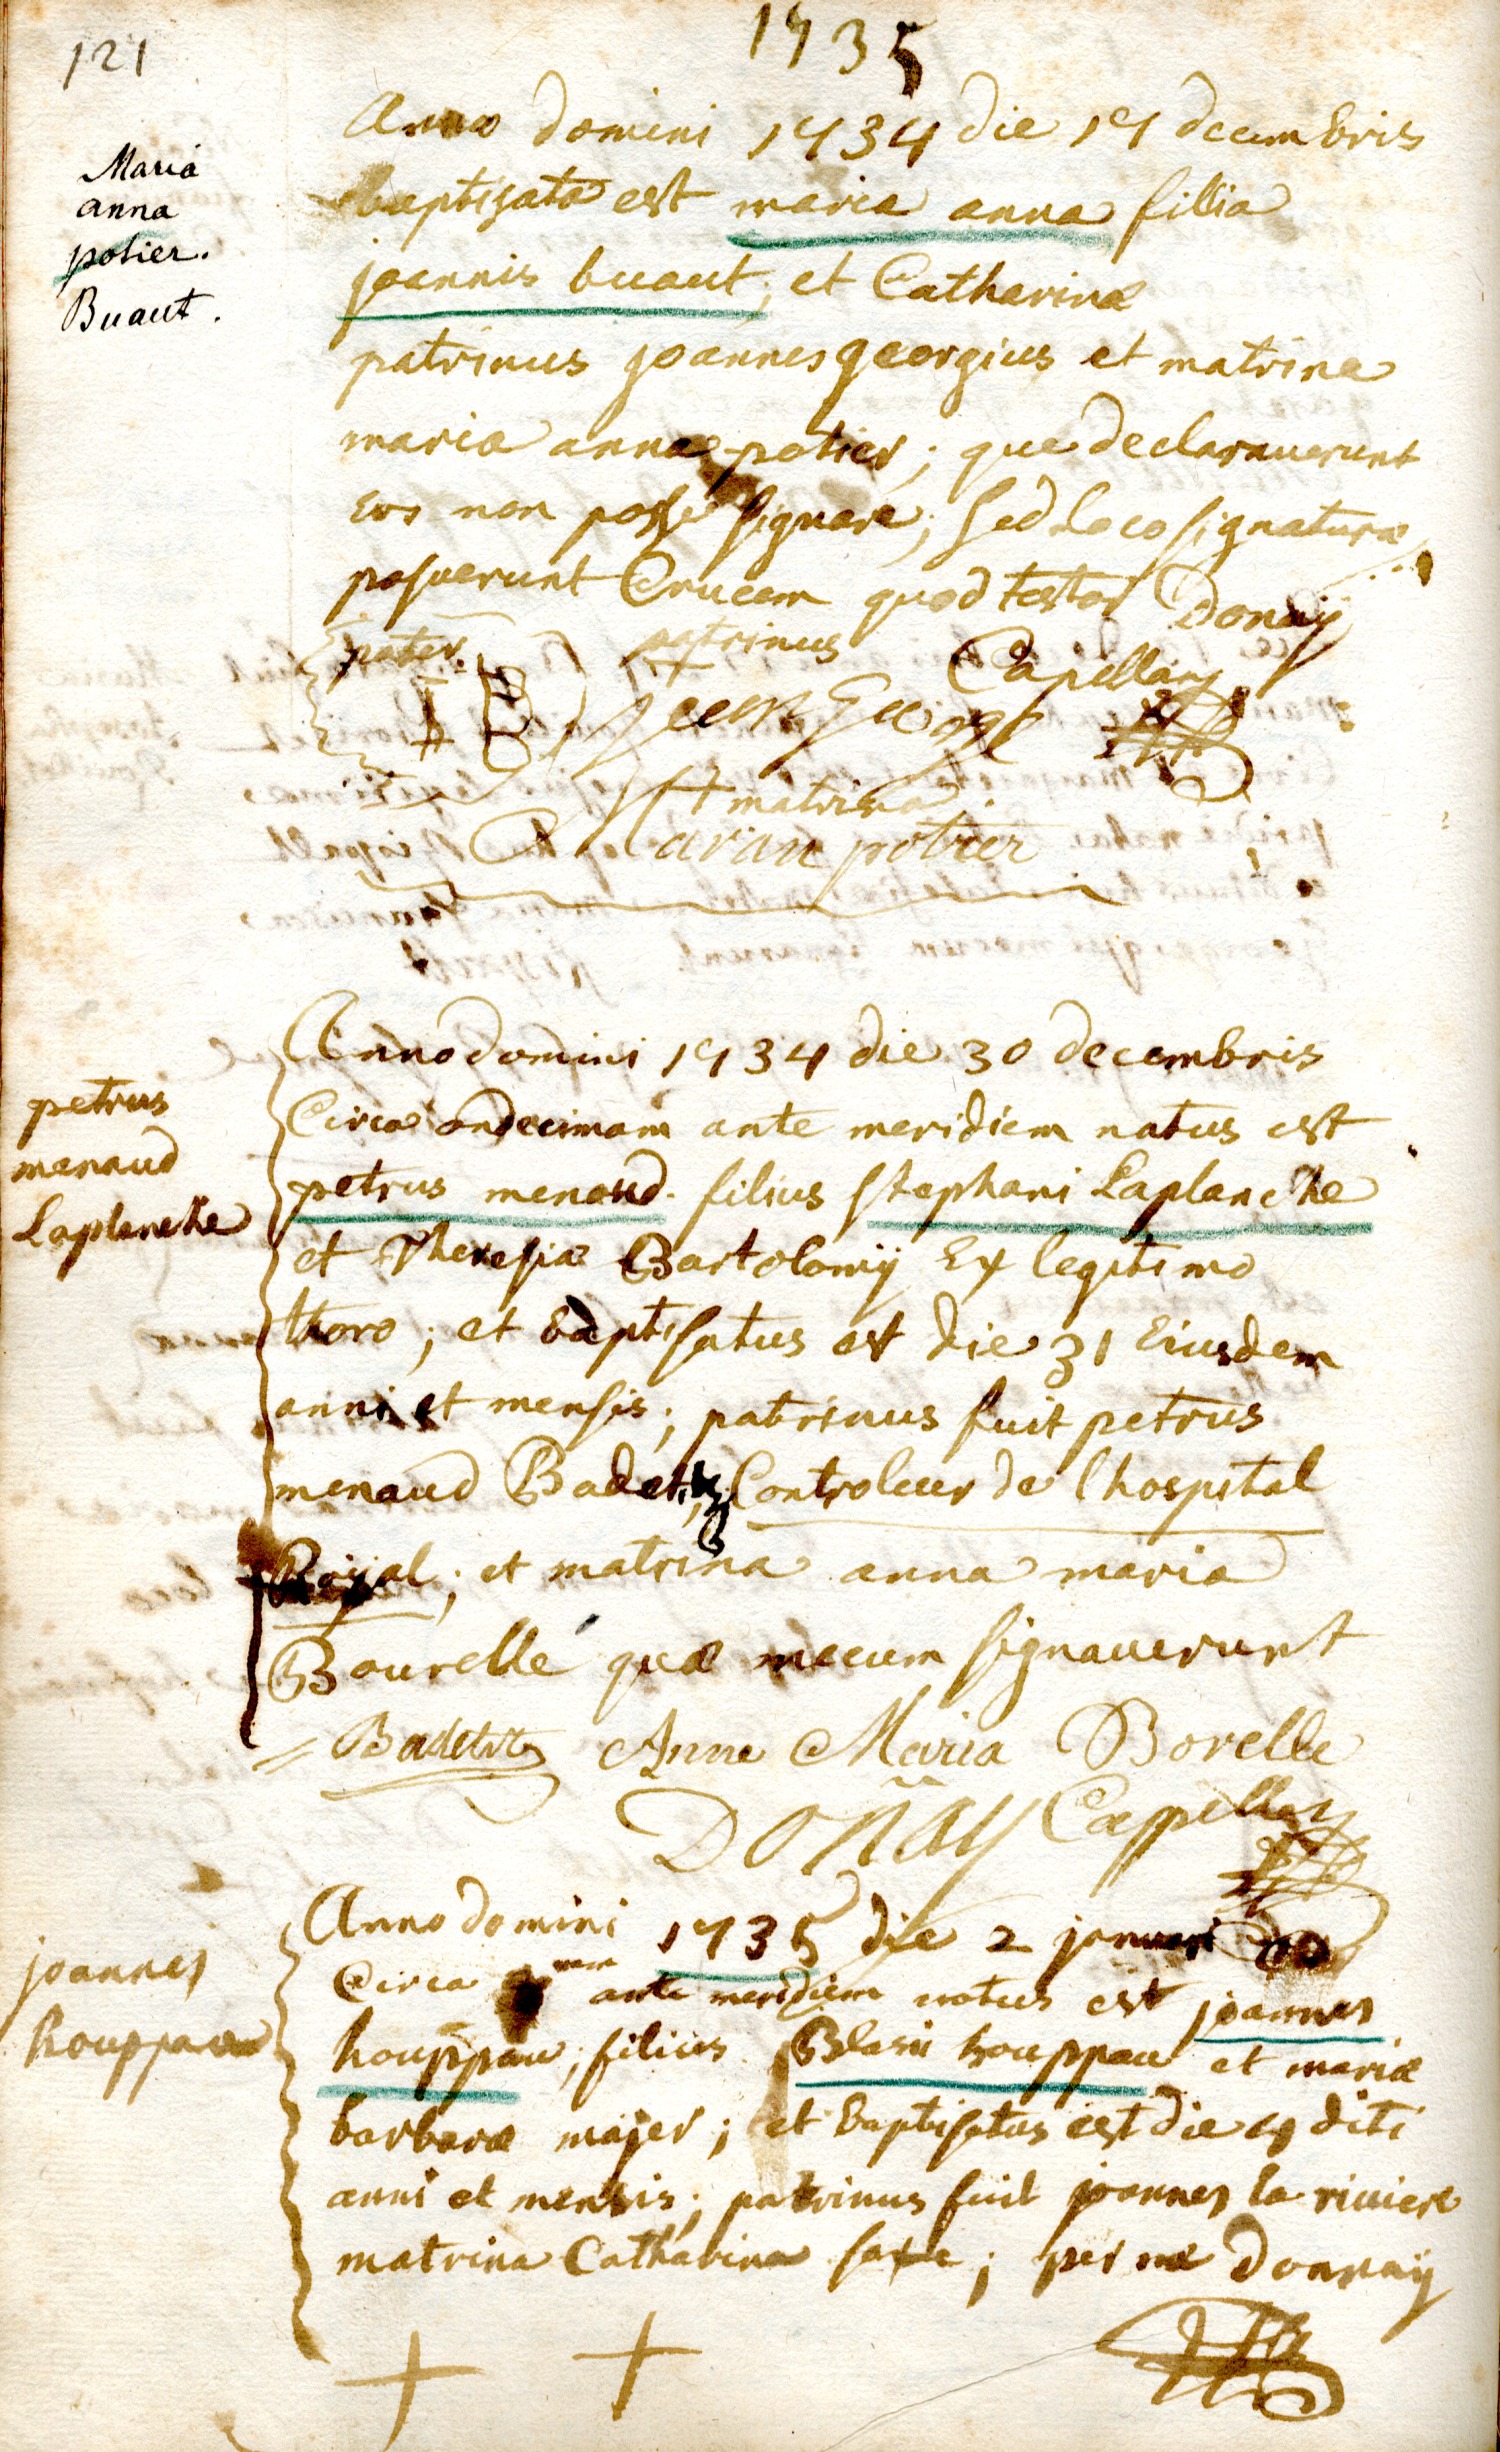 121
1735
Maria
anna
potier.
Buaut.
Anno domini 1734 die 17 decembris
baptisata est maria anna fillia
joannis buaut, et Catharinæ
patrinus joannes georgius et matrina
maria anna potier; que declarauerunt
Eos non posse signare; sed loco signaturæ
posuerunt Crucem quod testor Donaÿ
pater. patrinus Capellanus
I B jean George
+ matrina
potier
petrus
menaud
Laplanche
Anno domini 1734 die 30 decembris
Circa ondecimam ante meridiem natus est
petrus menaud. filius stephani Laplanche
et Theresiæ Bartolomÿ Ex legitimo
thoro; et baptisatus est die 31 Eiusdem
anni et mensis; patrinus fuit petrus
menaud Badet, Controleur de lhospital
Roÿal; et matrina anna maria
Bourellé quæ mecum signauerunt
Anne Maria Borelle
Doñay Cappellan
joannes
houppau
Anno domini 1735 die 2 januari
Circa ante meridiem natus est joannes
houppau; filius Blasii houppau et mariæ
barbaræ majer; et baptisatus est die 4 diti
anni et mensis; patrinus fuit joannes la riuiere
matrina Catharina saxe; per me Donnaÿ
+ +